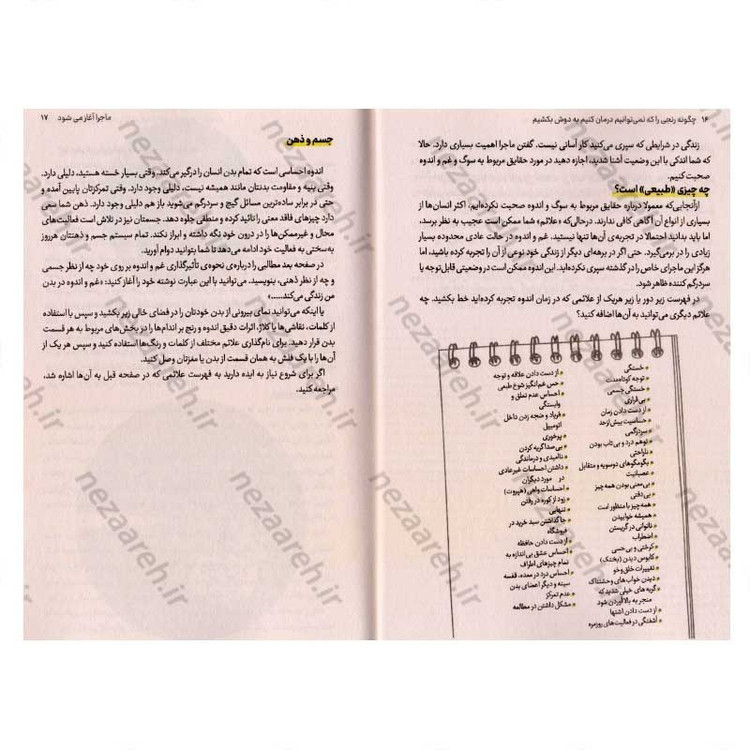 ۱۶ چگونه رنجی را که نمی‌توانیم درمان کنیم به دوش بکشیم
زندگی در شرایطی که سپری می‌کنید کار آسانی نیست. گفتن ماجرا اهمیت بسیاری دارد. حالا
که شما اندکی با این وضعیت آشنا شدید، اجازه دهید در مورد حقایق مربوط به سوگ و غم و اندوه
صحبت کنیم.
چه چیزی «طبیعی» است؟
ازآنجایی‌که معمولا درباره حقایق مربوط به سوگ و اندوه صحبت نکرده‌ایم، اکثر انسان‌ها از
بسیاری از انواع آن آگاهی کافی ندارند. درحالی‌که «علائم» شما ممکن است عجیب به نظر برسد،
اما باید بدانید احتمالا در تجربه‌ی آن‌ها تنها نیستید. غم و اندوه در حالت عادی محدوده بسیار
زیادی را در برمی‌گیرد. حتی اگر در برهه‌ای دیگر از زندگی خود نوعی از آن را تجربه کرده باشید،
هرگز این ماجرای خاص را در گذشته سپری نکرده‌اید. این اندوه ممکن است در وضعیتی قابل‌توجه یا
سردرگم کننده ظاهر شود.
در فهرست زیر دور یا زیر هریک از علائمی که در زمان اندوه تجربه کرده‌اید خط بکشید. چه
علائم دیگری می‌توانید به آن‌ها اضافه کنید؟
خستگی
توجه کوتاه‌مدت
خستگی جسمی
بی‌قراری
از دست دادن زمان
حساسیت بیش‌ازحد
سردرگمی
توهم درد و بی‌تاب بودن
ناراحتی
بگومگوهای دوسویه و متقابل
عصبانیت
بی‌معنی بودن همه‌چیز
بی‌دقتی
همه‌چیز با منظور است
همیشه خوابیدن
ناتوانی در گریستن
اضطراب
کرختی و بی‌حسی
کابوس دیدن (بختک)
تغییرات خلق‌وخو
دیدن خواب‌های وحشتناک
گریه های خیلی شدید که
منجر به بالاآوردن شود
از دست دادن اشتها
آشفتگی در فعالیت‌های روزمره
از دست دادن علاقه و توجه
حس غم‌انگیز شوخ طبعی
احساس عدم تعلق و
وابستگی
فریاد و ضجه زدن داخل
اتومبیل
پرخوری
بی‌صدا گریه کردن
ناامیدی و درماندگی
داشتن احساسات غیرعادی
در مورد دیگران
احساسات واهی (هپروت)
زود از کوره در رفتن
تنهایی
جا گذاشتن سبد خرید در
فروشگاه
از دست دادن حافظه
احساس عشق بی اندازه به
تمام چیزهای اطراف
احساس درد در معده، قفسه
سینه و دیگر اعضای بدن
عدم تمرکز
مشکل داشتن در مطالعه
ماجرا آغاز می شود ۱۷
جسم و ذهن
اندوه احساسی است که تمام بدن انسان را درگیر می‌کند. وقتی بسیار خسته هستید، دلیلی دارد.
وقتی بنیه و مقاومت بدنتان مانند همیشه نیست، دلیلی وجود دارد. وقتی تمرکزتان پایین آمده و
حتی در برابر ساده‌ترین مسائل گیج و سردرگم می‌شوید باز هم دلیلی وجود دارد. ذهن شما سعی
دارد چیزهای فاقد معنا را تائید کرده و منطقی جلوه دهد. جسمتان نیز در تلاش است فعالیت‌های
محال و غیرممکن‌ها را در درون خود نگه داشته و ابراز نکند. تمام سیستم جسم و ذهنتان هرروز
به‌سختی به فعالیت خود ادامه می‌دهد تا شما بتوانید دوام آورید.
در صفحه بعد مطالبی را درباره‌ی نحوه‌ی تأثیرگذاری غم و اندوه بر روی خود چه از نظر جسمی
و چه از نظر ذهنی، بنویسید. می‌توانید با این عبارت نوشته خود را آغاز کنید: «غم و اندوه در بدن
من زندگی می‌کند.....»
یا اینکه می‌توانید نمای بیرونی از بدن خودتان را در فضای خالی زیر بکشید و سپس با استفاده
از کلمات، نقاشی‌ها یا کلاژ، اثرات دقیق اندوه و رنج بر اندام‌ها را در بخش‌های مربوط به هر قسمت
بدن قرار دهید. برای نام‌گذاری علائم مختلف از کلمات و رنگ‌ها استفاده کنید و سپس هر یک از
آن‌ها را با یک فلش به همان قسمت از بدن یا مغزتان وصل کنید.
اگر برای شروع نیاز به ایده دارید به فهرست علائمی که در صفحه قبل به آن‌ها اشاره شد،
مراجعه کنید.
nezaareh.ir
nezaareh.ir
nezaareh.ir
nezaareh.ir
nezaareh.ir